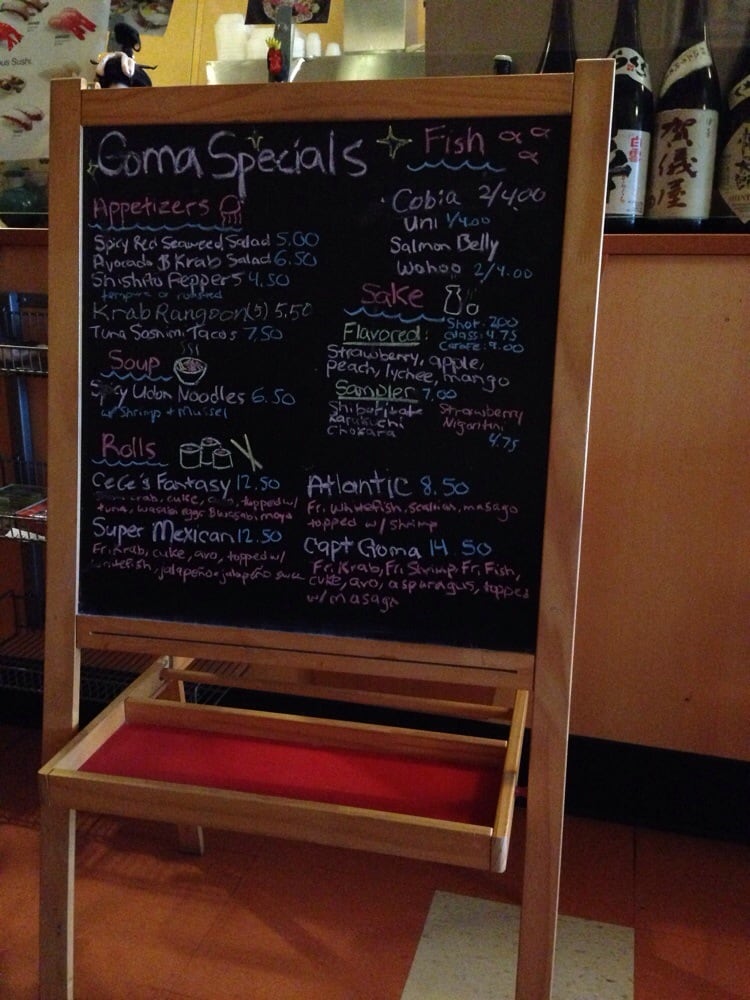 Goma Specials
Appetizers
Spicy Red Seaweed Salad 5.00
Avocado & Krab Salad 6.50
Shishito Peppers 4.50
tempura or roasted
Krab Rangoon (5) 5.50
Tuna Sashimi Tacos 7.50
Soup
Spicy Udon Noodles 6.50
w/ Shrimp + Mussel
Rolls
CeCe's Fantasy 12.50
crab, cuke, topped w/
tuna, wasabi eggs & wasabi mayo
Super Mexican 12.50
Fr. Krab, cuke, avo, topped w/
whitefish, jalapeño + jalapeño sauce
Fish
Cobia 2/4.00
Uni 1/4.00
Salmon Belly
Wahoo 2/4.00
Sake
Flavored:
Shot: 2.00
Glass: 4.75
Carafe: 9.00
Strawberry, apple,
peach, lychee, mango
Sampler 7.00
Karakuchi
Chokara
Strawberry
Nigoritini
4.75
Atlantic 8.50
Fr. Whitefish, scallion, masago
topped w/ shrimp
Capt Goma 14.50
Fr. Krab, Fr. Shrimp, Fr. Fish,
cuke, avo, asparagus, topped
w/ masago
ous Sushi.
賀儀屋